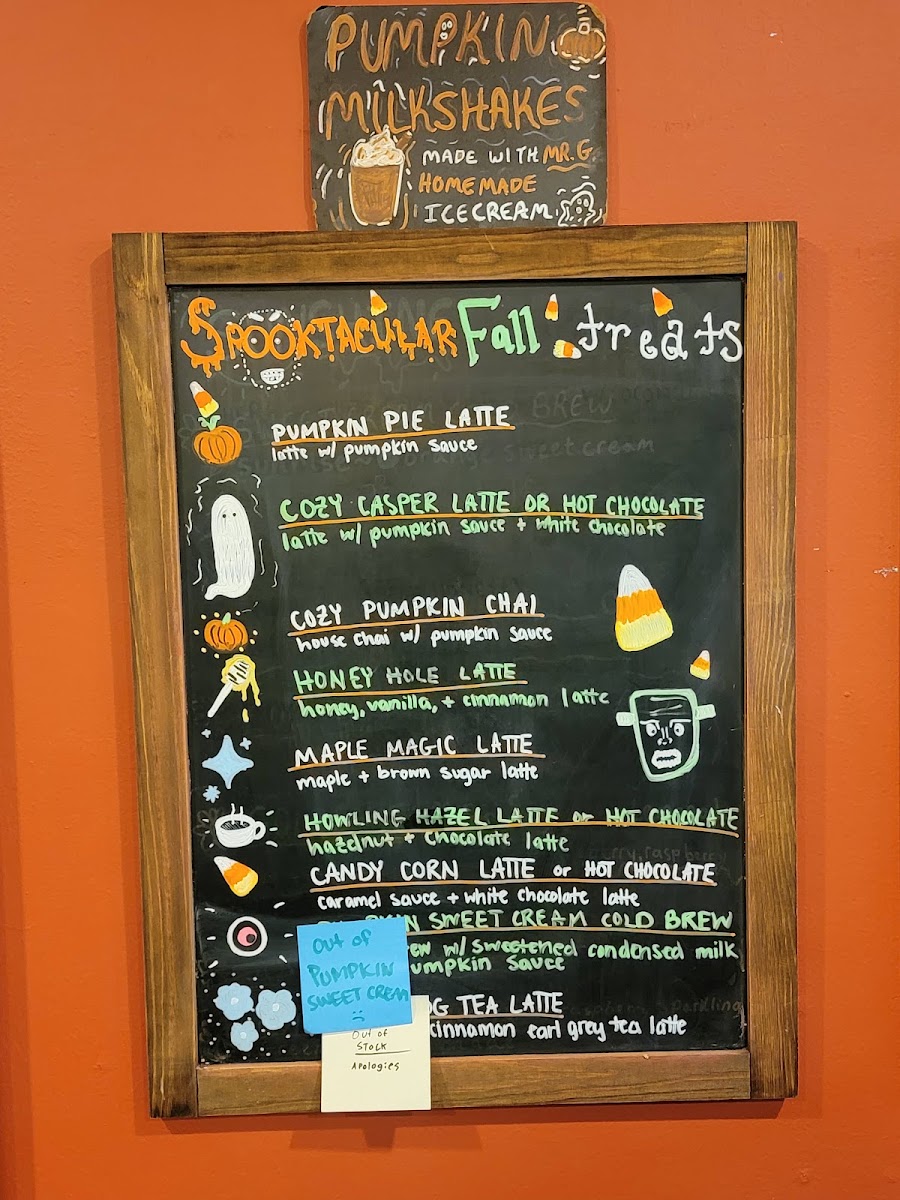 PUMPKIN
MILKSHAKES
MADE WITH MR.G
HOMEMADE
ICECREAM
SPOOKTACULAR Fall treats
PUMPKIN PIE LATTE
latte w/ pumpkin sauce
COZY CASPER LATTE OR HOT CHOCOLATE
latte w/ pumpkin sauce + white chocolate
COZY PUMPKIN CHAI
house chai w/ pumpkin sauce
HONEY HOLE LATTE
honey, vanilla, + cinnamon latte
MAPLE MAGIC LATTE
maple + brown sugar latte
HOWLING HAZEL LATTE or HOT CHOCOLATE
hazelnut + chocolate latte
CANDY CORN LATTE or HOT CHOCOLATE
caramel sauce + white chocolate latte
SWEET CREAM COLD BREW
w/ sweetened condensed milk
sauce
TEA LATTE
cinnamon earl grey tea latte
Out of
PUMPKIN
SWEET CREAM
:(
Out of
STOCK
Apologies